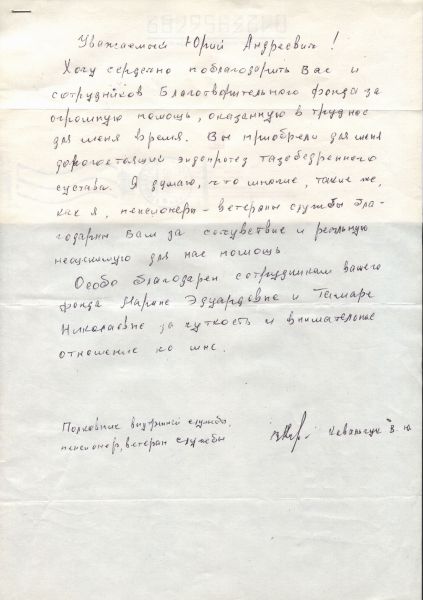 Уважаемый Юрий Андреевич!
Хочу сердечно поблагодарить Вас и
сотрудников Благотворительного фонда за
огромную помощь, оказанную в трудное
для меня время. Вы приобрели для меня
дорогостоящий эндопротез тазобедренного
сустава. Я думаю, что многие, такие же,
как я, пенсионеры - ветераны службы бла-
годарны Вам за сочувствие и реальную
неоценимую для нас помощь
Особо благодарен сотрудникам вашего
фонда Марине Эдуардовне и Тамаре
Николаевне за чуткость и внимательное
отношение ко мне.
Полковник внутренней службы,
пенсионер, ветеран службы
Ковальчук В.